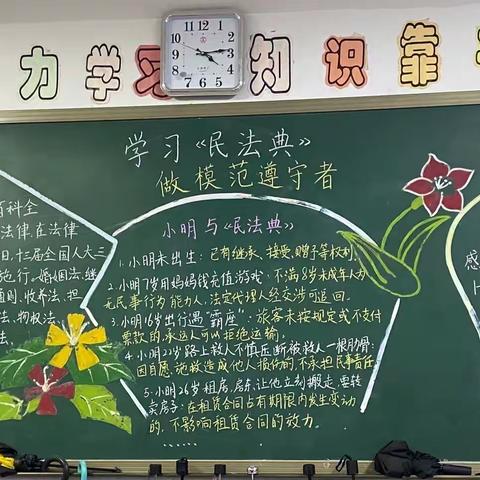 力学习 知识靠
学习《民法典》
做模范遵守者
小明与《民法典》
1.小明未出生:已有继承、接受赠予等权利。
2.小明7岁用妈妈钱充值游戏:不满8岁未成年人为
无民事行为能力人,法定代理人经交涉可返回。
3.小明16岁出行遇"霸座":旅客未按规定或不支付
票款的,承运人可以拒绝运输。
4.小明22岁路上救人不慎压断被救人一根肋骨:
因自愿施救造成他人损伤的,不承担民事责任
5.小明26岁租房,房东让他立刻搬走,要转
卖房子:在租赁合同占有期限内发生变动
的,不影响租赁合同的效力。
……
百科全
法律,在法律
日,十三届全国人大三
施行。婚姻法、继
通则、收养法、担
法、物权法、
法、
感